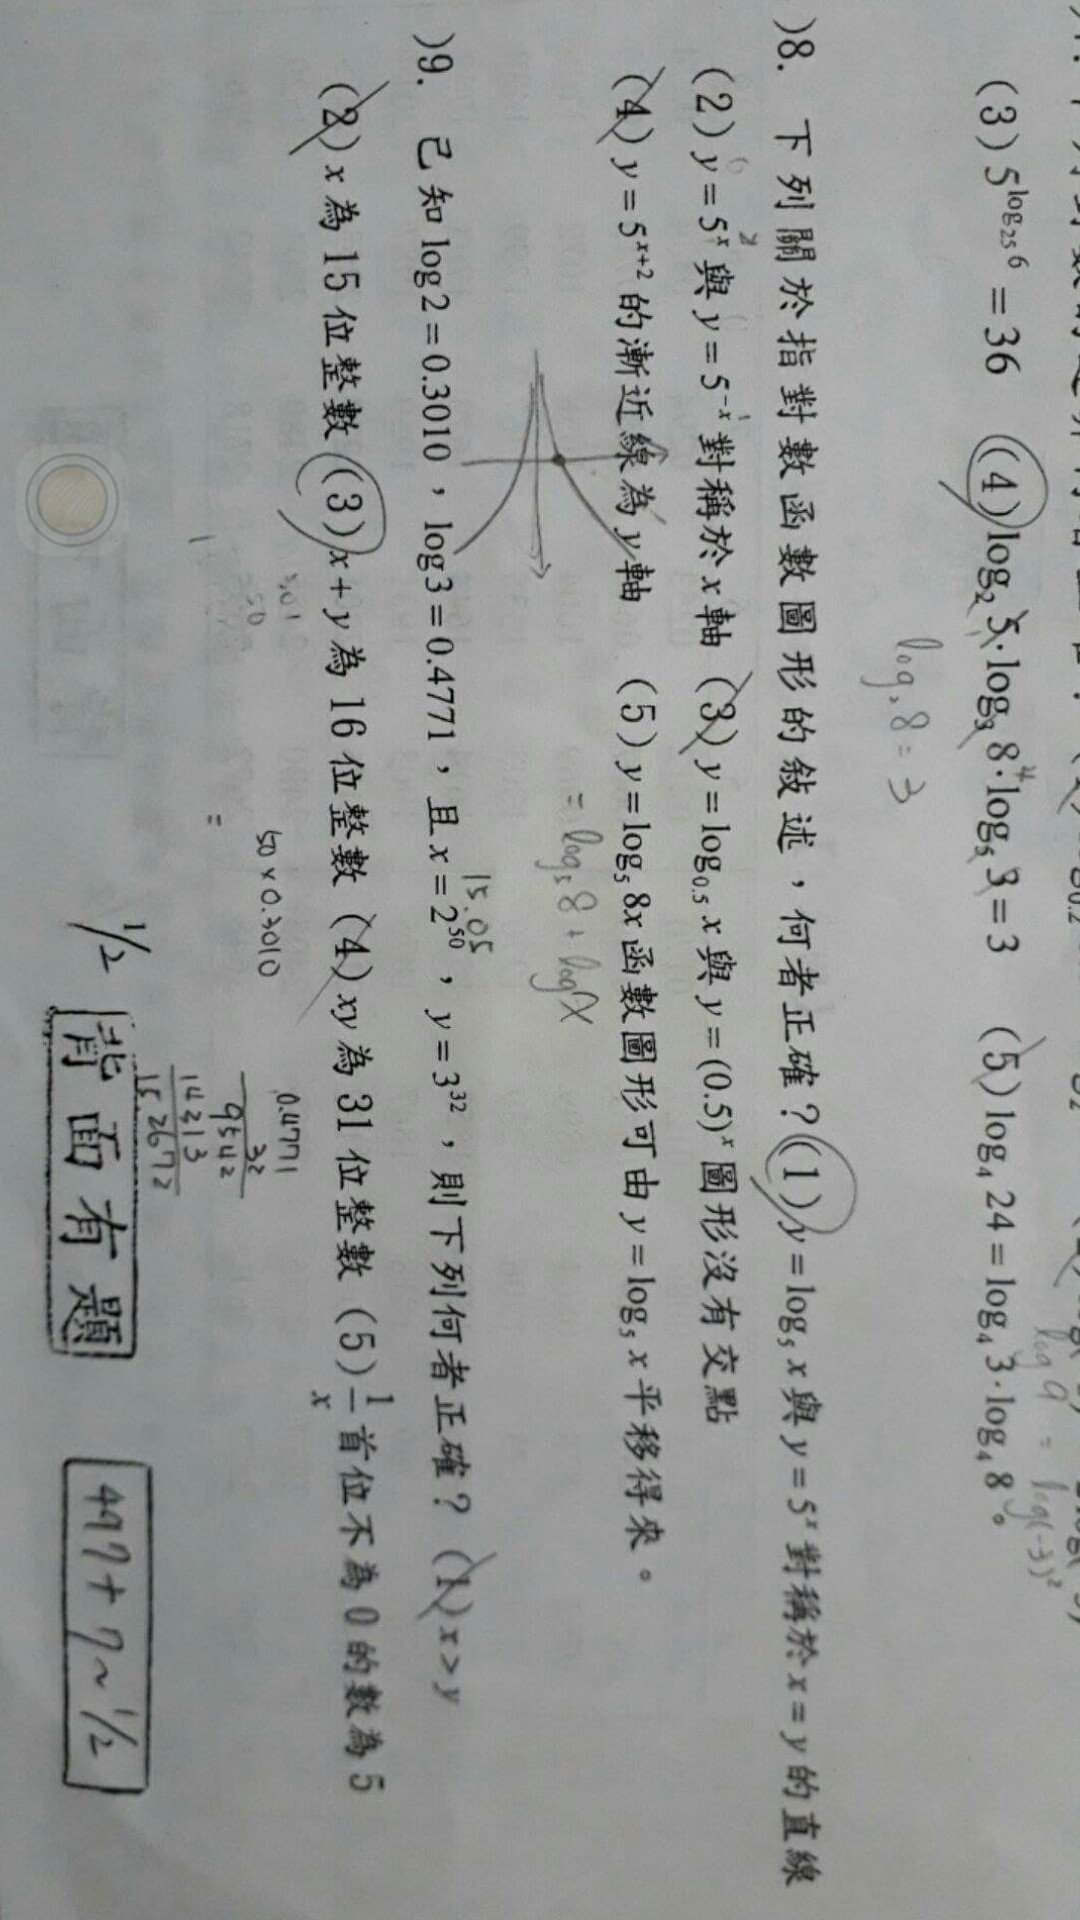 (3) 5^log₂₅6 = 36 (4) log₂5·log₃8·log₅3 = 3 (5) log₄24 = log₄3·log₄8。
log 9 = log(-3)²
log₂8 = 3
)8. 下列關於指對數函數圖形的敍述，何者正確？(1) y = log₅x 與 y = 5ˣ 對稱於 x = y 的直線
(2) y = 5ˣ 與 y = 5⁻ˣ 對稱於 x 軸 (3) y = log₀.₅x 與 y = (0.5)ˣ 圖形沒有交點
(4) y = 5ˣ⁺² 的漸近線為 y 軸 (5) y = log₅8x 函數圖形可由 y = log₅x 平移得來。
= log₅8 + log x
15.05
)9. 已知 log2 = 0.3010，log3 = 0.4771，且 x = 2⁵⁰，y = 3³²，則下列何者正確？ (1) x > y
(2) x 為 15 位整數 (3) x + y 為 16 位整數 (4) xy 為 31 位整數 (5) 1/x 首位不為 0 的數為 5
50 × 0.3010
=
0.4771
32
9542
14313
15.2672
1/2 背面有題 497+7~1/2